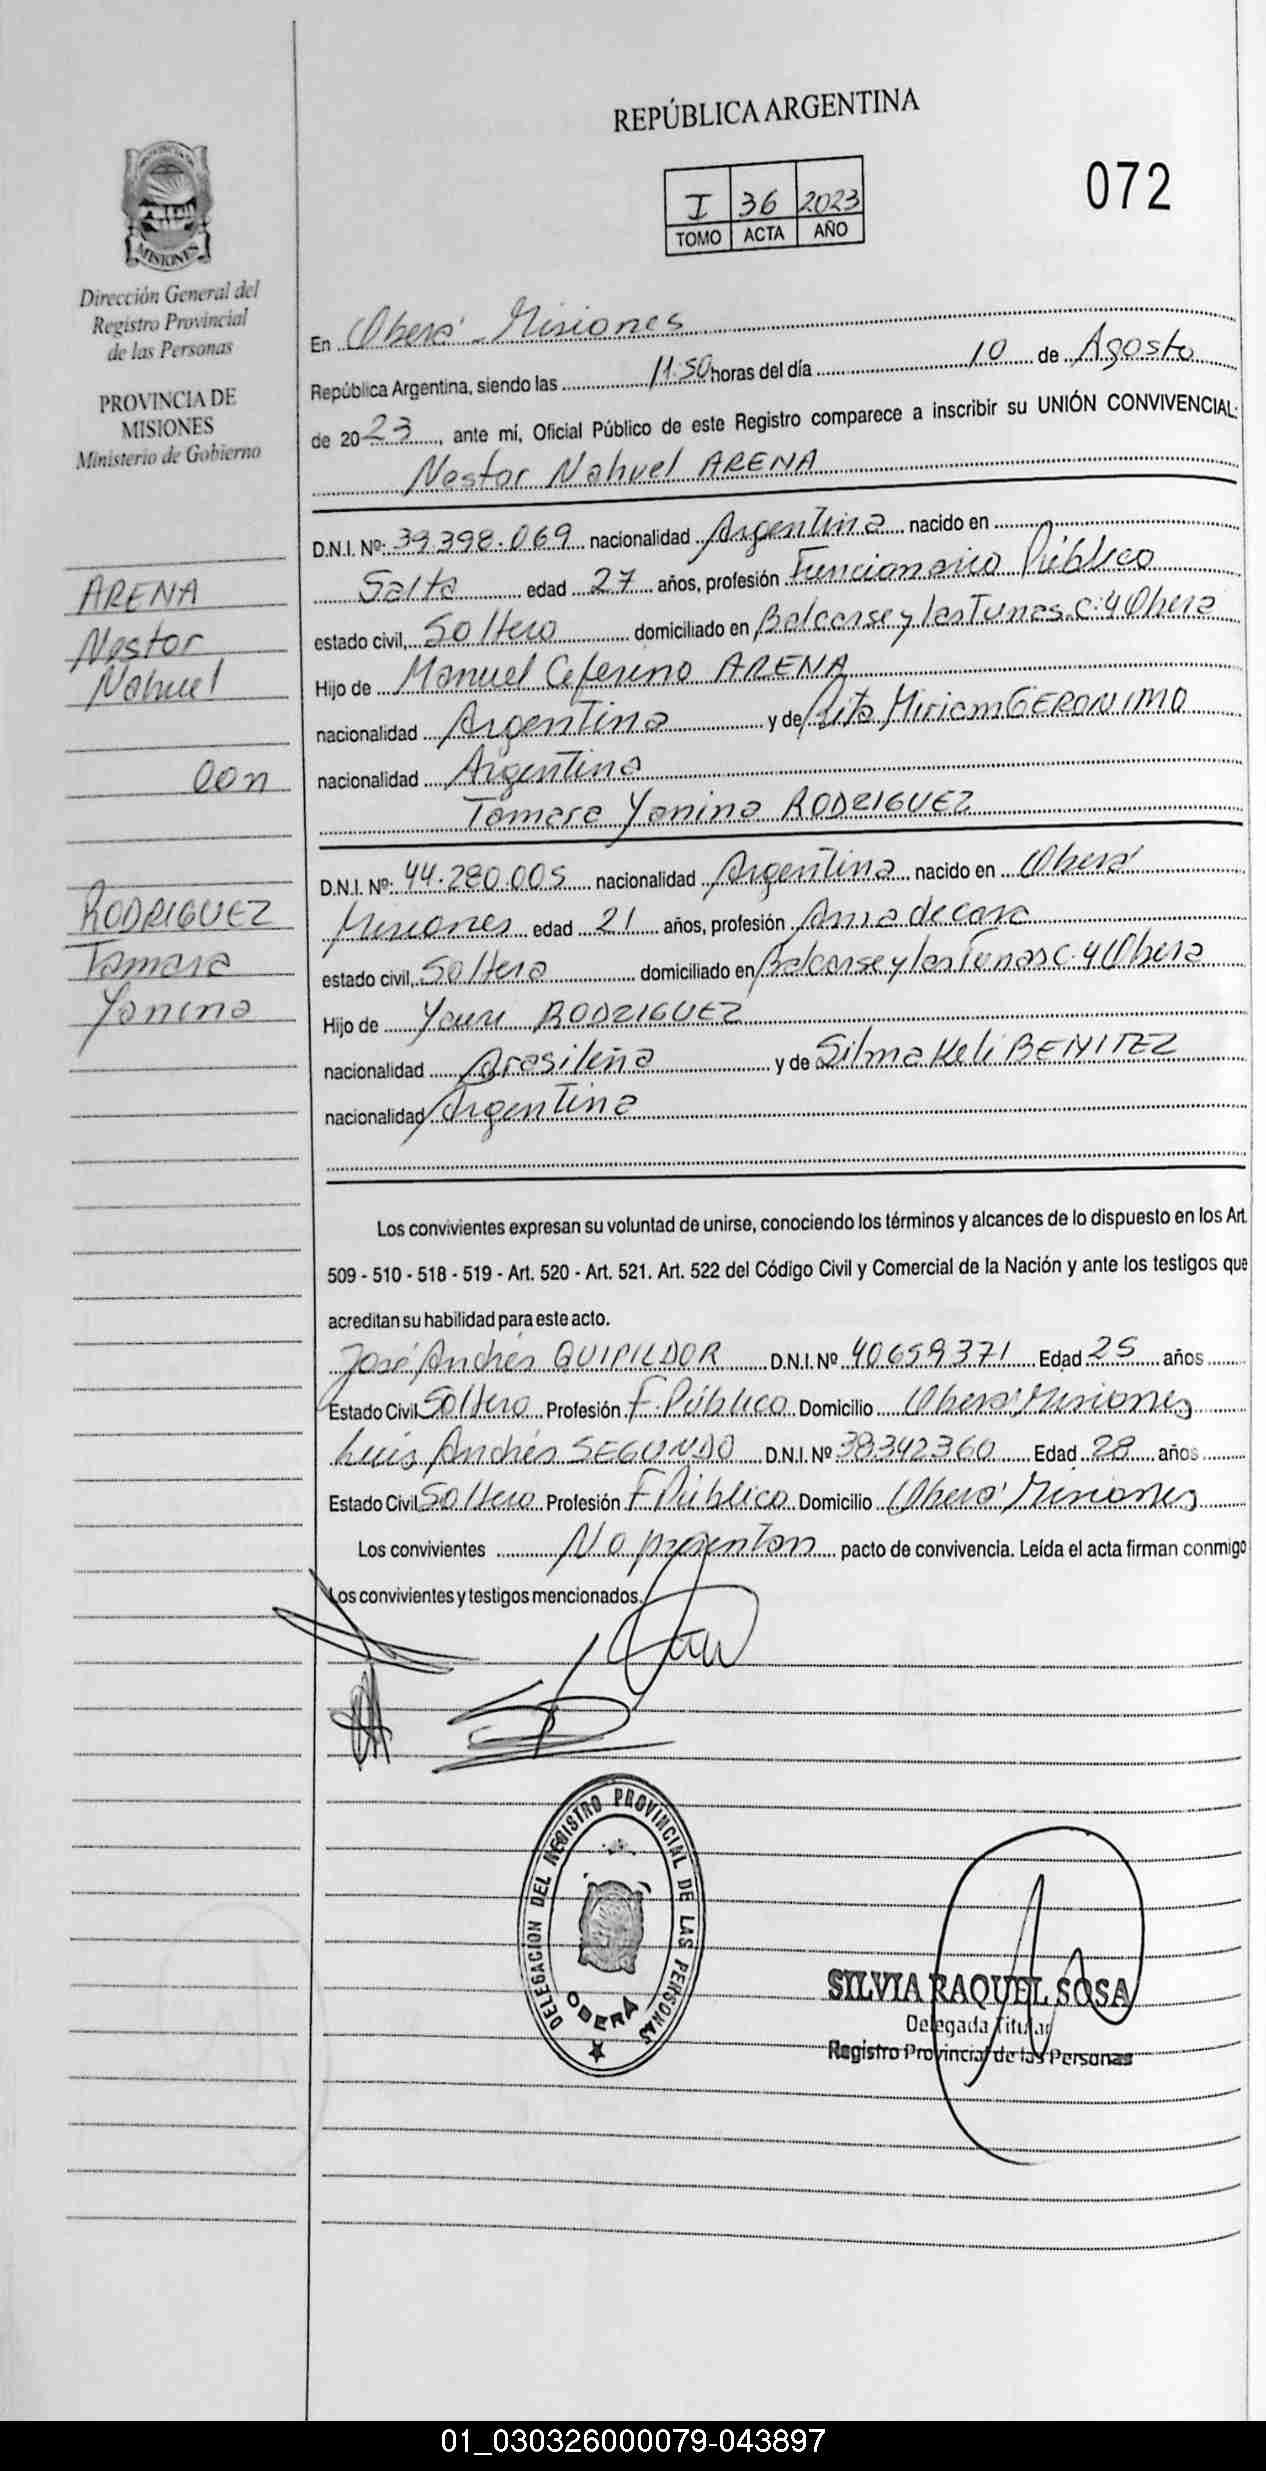 REPÚBLICA ARGENTINA
072
I 36 2023
TOMO ACTA AÑO
PROVINCIA DE
MISIONES
Dirección General del
Registro Provincial
de las Personas
PROVINCIA DE
MISIONES
Ministerio de Gobierno
ARENA
Nestor
Nahuel
Con
RODRIGUEZ
Tamara
Yanina
En Oberá - Misiones
República Argentina, siendo las 11:50 horas del día 10 de Agosto
de 2023, ante mí, Oficial Público de este Registro comparece a inscribir su UNIÓN CONVIVENCIAL:
Nestor Nahuel ARENA
D.N.I. Nº: 39.398.069 nacionalidad Argentina nacido en
Salta edad 27 años, profesión Funcionario Público
estado civil, Soltero domiciliado en Balcarse y las Tunas C. 4 Obera
Hijo de Manuel Ceferino ARENA
nacionalidad Argentina y de Rita Miriam GERONIMO
nacionalidad Argentina
Tamara Yanina RODRIGUEZ
D.N.I. Nº: 44.280.005 nacionalidad Argentina nacido en Oberá
Misiones edad 21 años, profesión Ama de casa
estado civil, Soltera domiciliado en Balcarse y las Tunas C. 4 Obera
Hijo de RODRIGUEZ
nacionalidad Brasileña y de Silma Keli BENITEZ
nacionalidad Argentina
Los convivientes expresan su voluntad de unirse, conociendo los términos y alcances de lo dispuesto en los Art.
509 - 510 - 518 - 519 - Art. 520 - Art. 521. Art. 522 del Código Civil y Comercial de la Nación y ante los testigos que
acreditan su habilidad para este acto.
José Andrés QUIPILDOR D.N.I. Nº 40659371 Edad 25 años
Estado Civil Soltero Profesión F. Público Domicilio Oberá Misiones
Luis Andrés SEGUNDO D.N.I. Nº 38342360 Edad 28 años
Estado Civil Soltero Profesión F Público Domicilio Oberá Misiones
Los convivientes No presentan pacto de convivencia. Leída el acta firman conmigo
Los convivientes y testigos mencionados.
DELEGACION DEL REGISTRO PROVINCIAL DE LAS PERSONAS
OBERA
SILVIA RAQUEL SOSA
Delegada Titular
Registro Provincial de las Personas
01_030326000079-043897